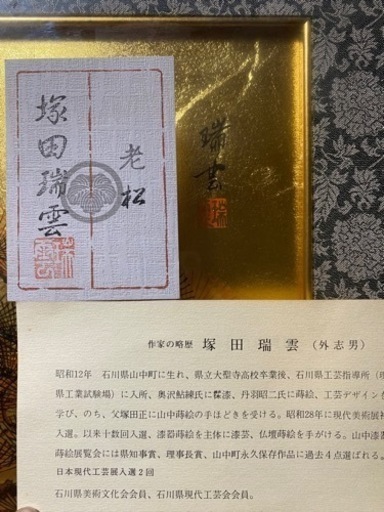 老松
塚田瑞雲
瑞雲
作家の略歴 塚田瑞雲 (外志男)
昭和12年 石川県山中町に生れ、県立大聖寺高校卒業後、石川県工芸指導所（現
県工業試験場）に入所、奥沢鮎練氏に髹漆、丹羽昭二氏に蒔絵、工芸デザインを
学び、のち、父塚田正に山中蒔絵の手ほどきを受ける。昭和28年に現代美術展初
入選。以来十数回入選、漆器蒔絵を主体に漆芸、仏壇蒔絵を手がける。山中漆器
蒔絵展覧会には県知事賞、理事長賞、山中町永久保存作品に過去4点選ばれる。
日本現代工芸展入選2回
石川県美術文化会会員、石川県現代工芸会会員。